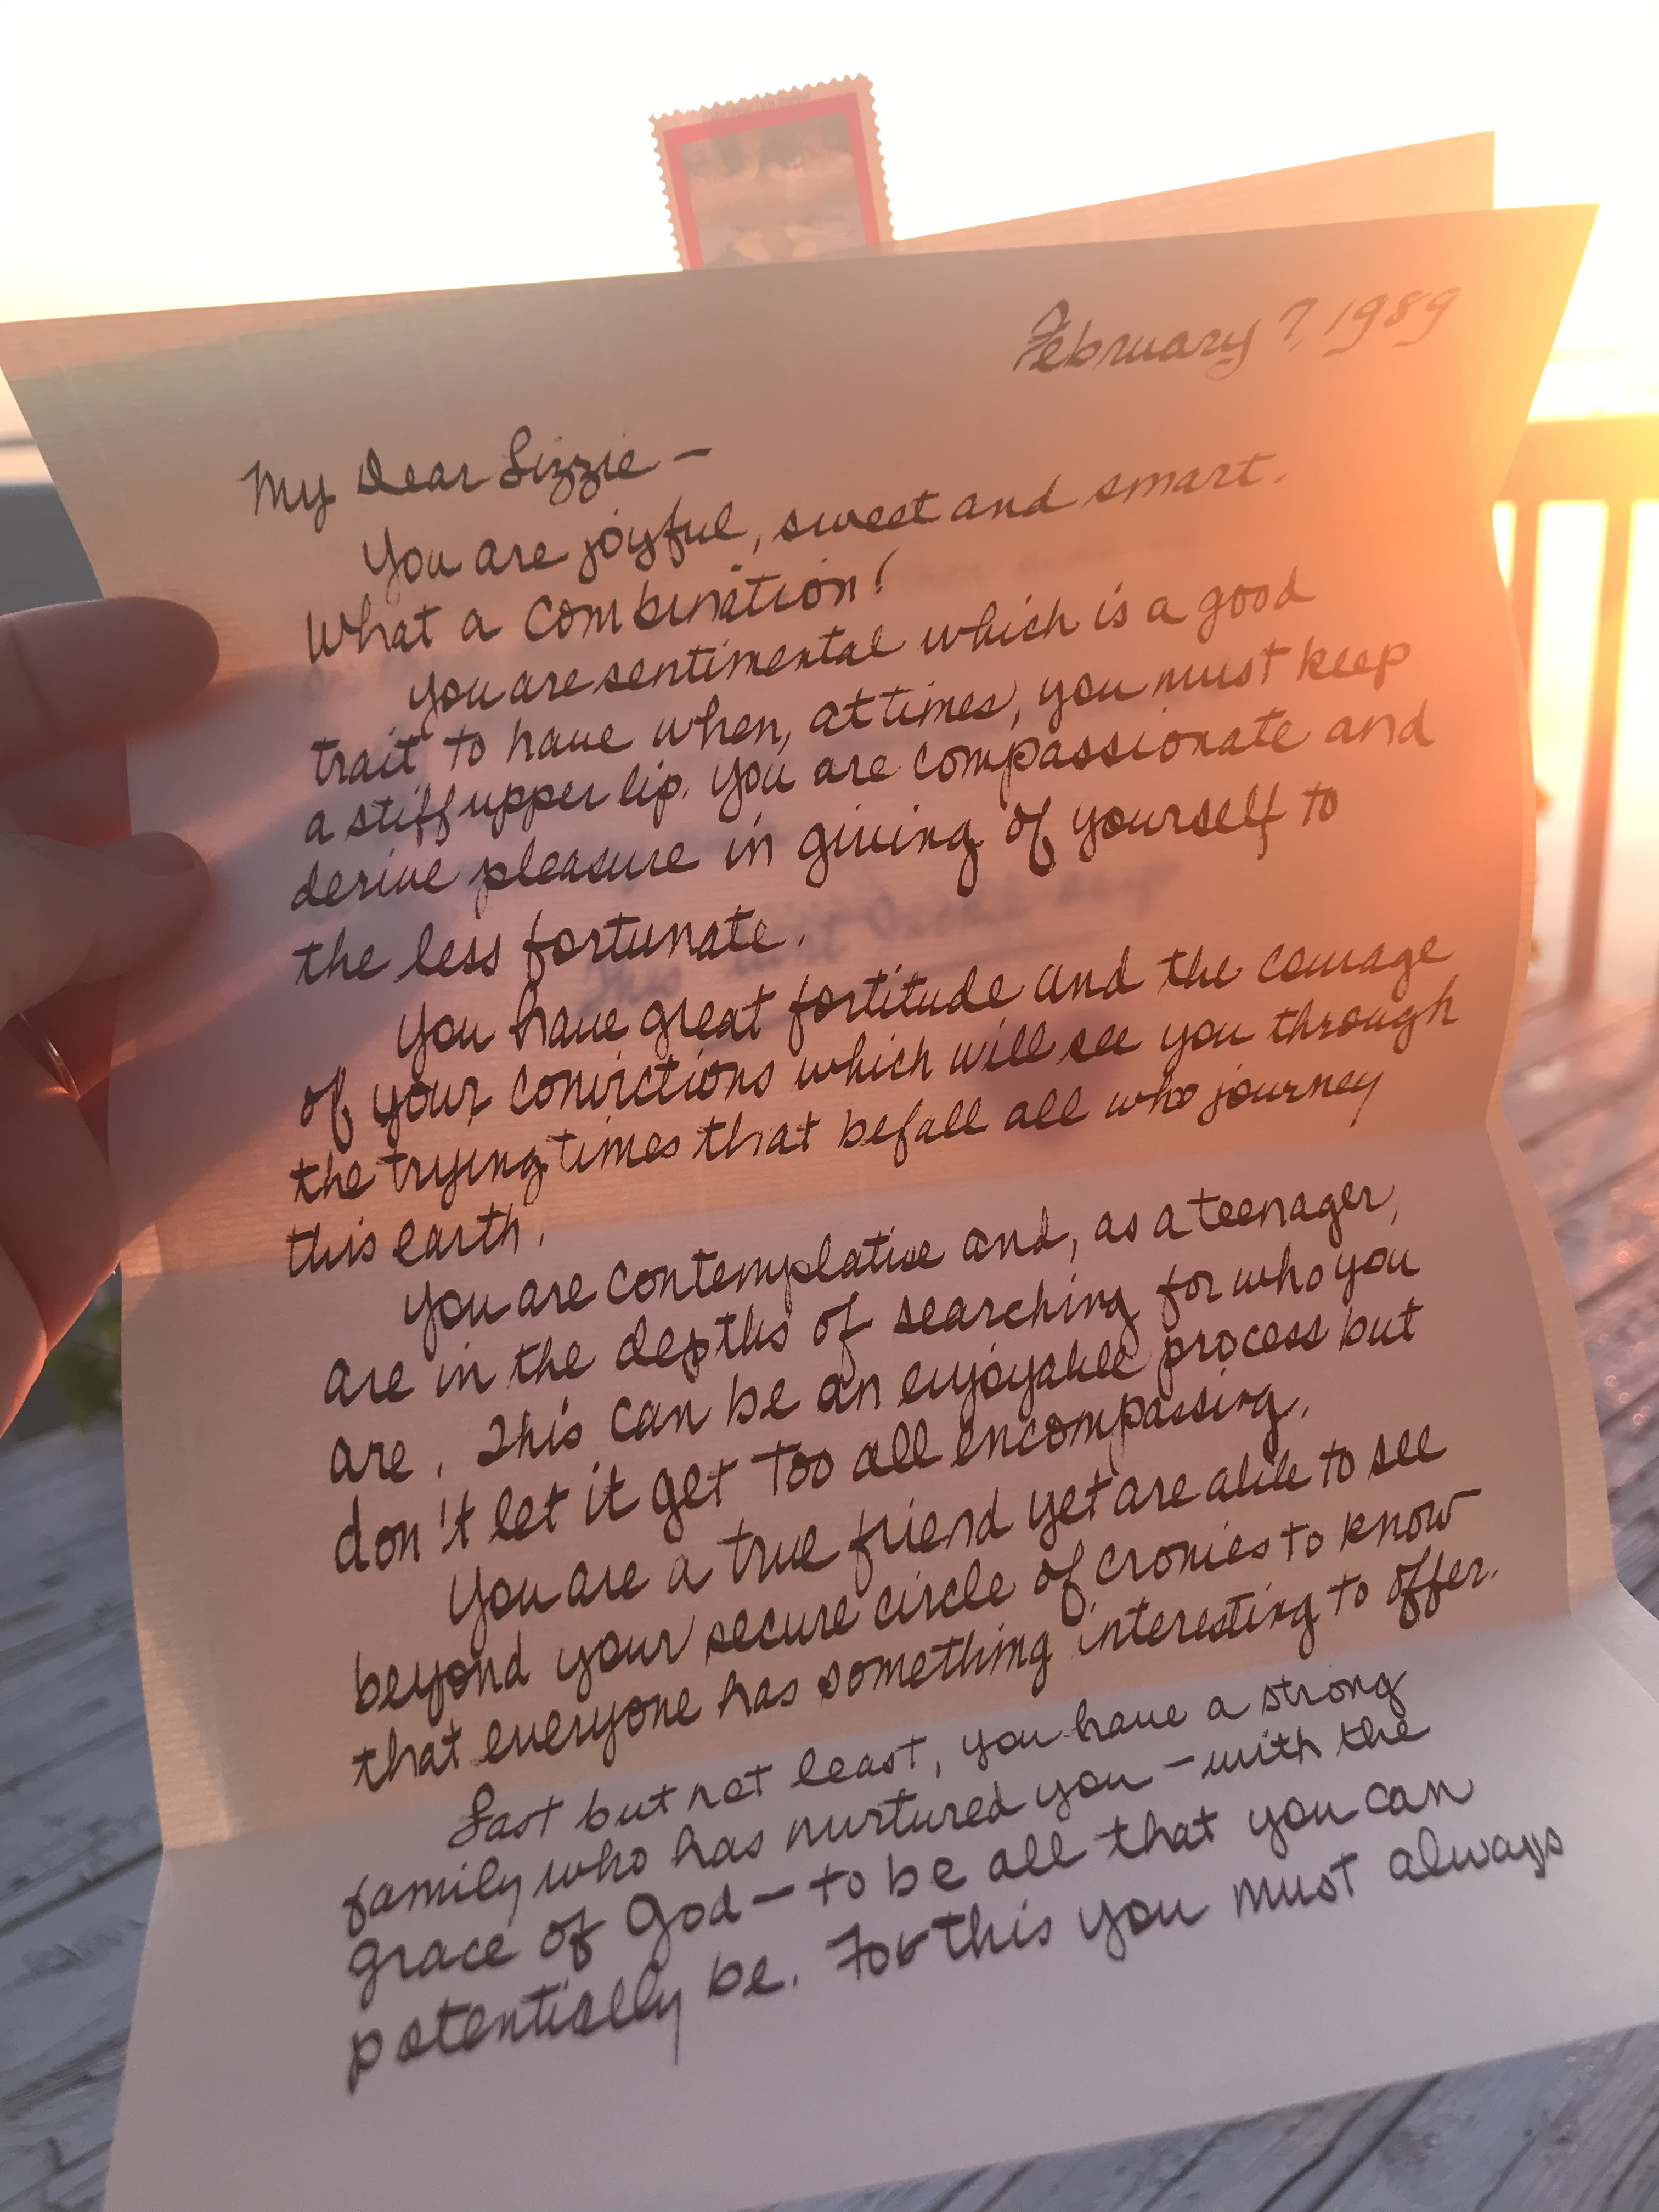 February 7, 1989
My Dear Lizzie –
You are joyful, sweet and smart.
What a combination!
You are sentimental which is a good
trait to have when, at times, you must keep
a stiff upper lip. You are compassionate and
derive pleasure in giving of yourself to
the less fortunate.
You have great fortitude and the courage
of your convictions which will see you through
the trying times that befall all who journey
this earth.
You are contemplative and, as a teenager,
are in the depths of searching for who you
are. This can be an enjoyable process but
don't let it get too all encompassing.
You are a true friend yet are able to see
beyond your secure circle of cronies to know
that everyone has something interesting to offer.
Last but not least, you have a strong
family who has nurtured you – with the
grace of God – to be all that you can
potentially be. For this you must always